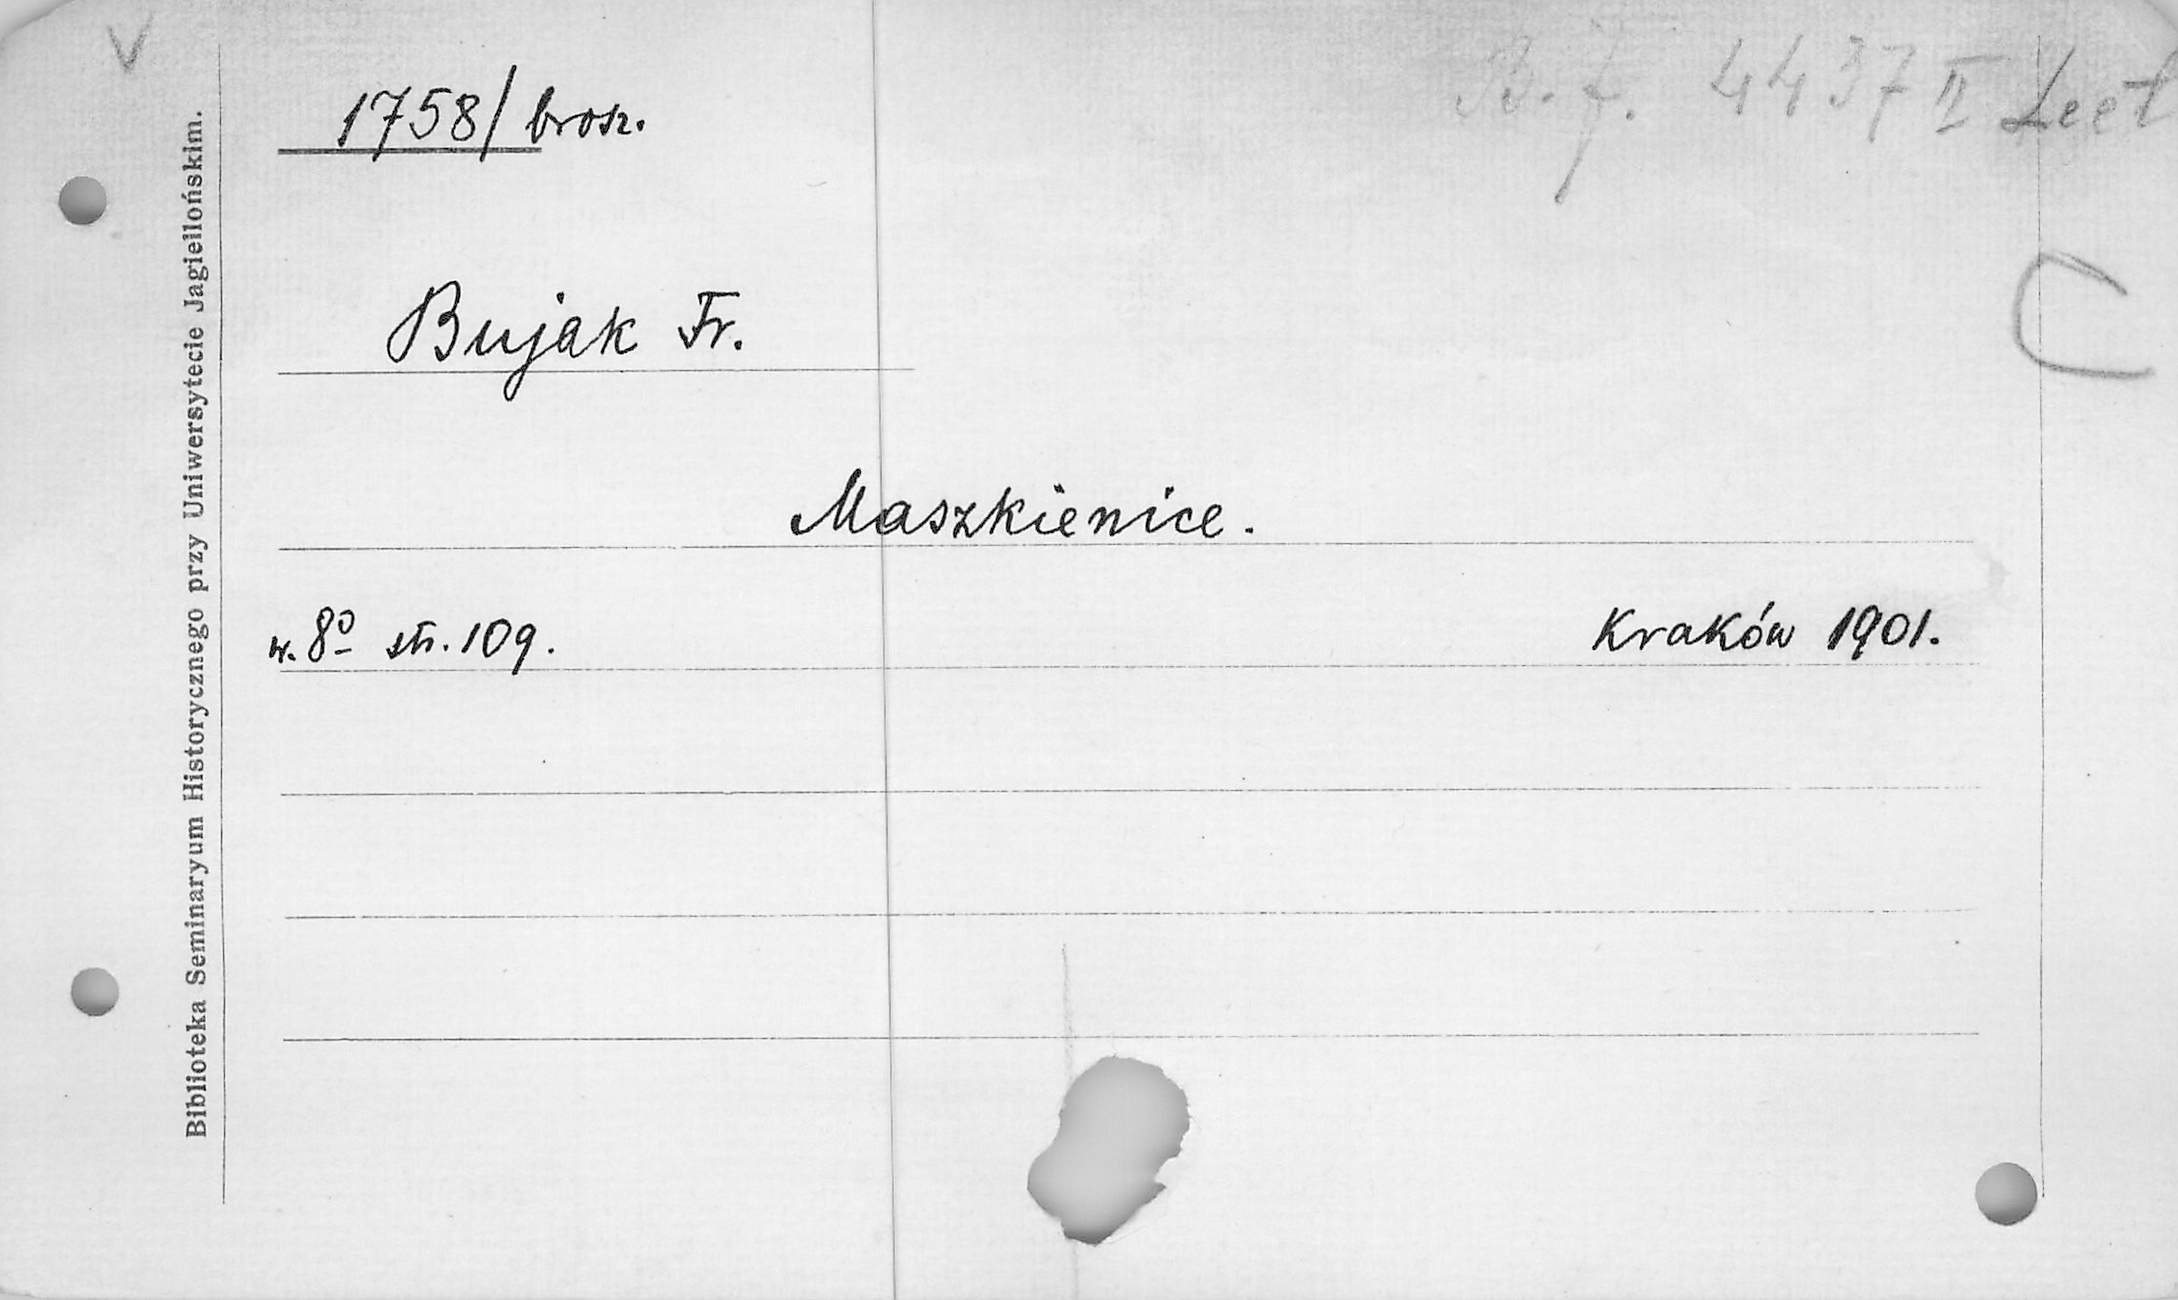 V
1758/brosz.
B. f. 4437 II Leet
C
Bujak Fr.
Maszkienice.
w. 8º str. 109.
Kraków 1901.
Biblioteka Seminaryum Historycznego przy Uniwersytecie Jagiellońskim.